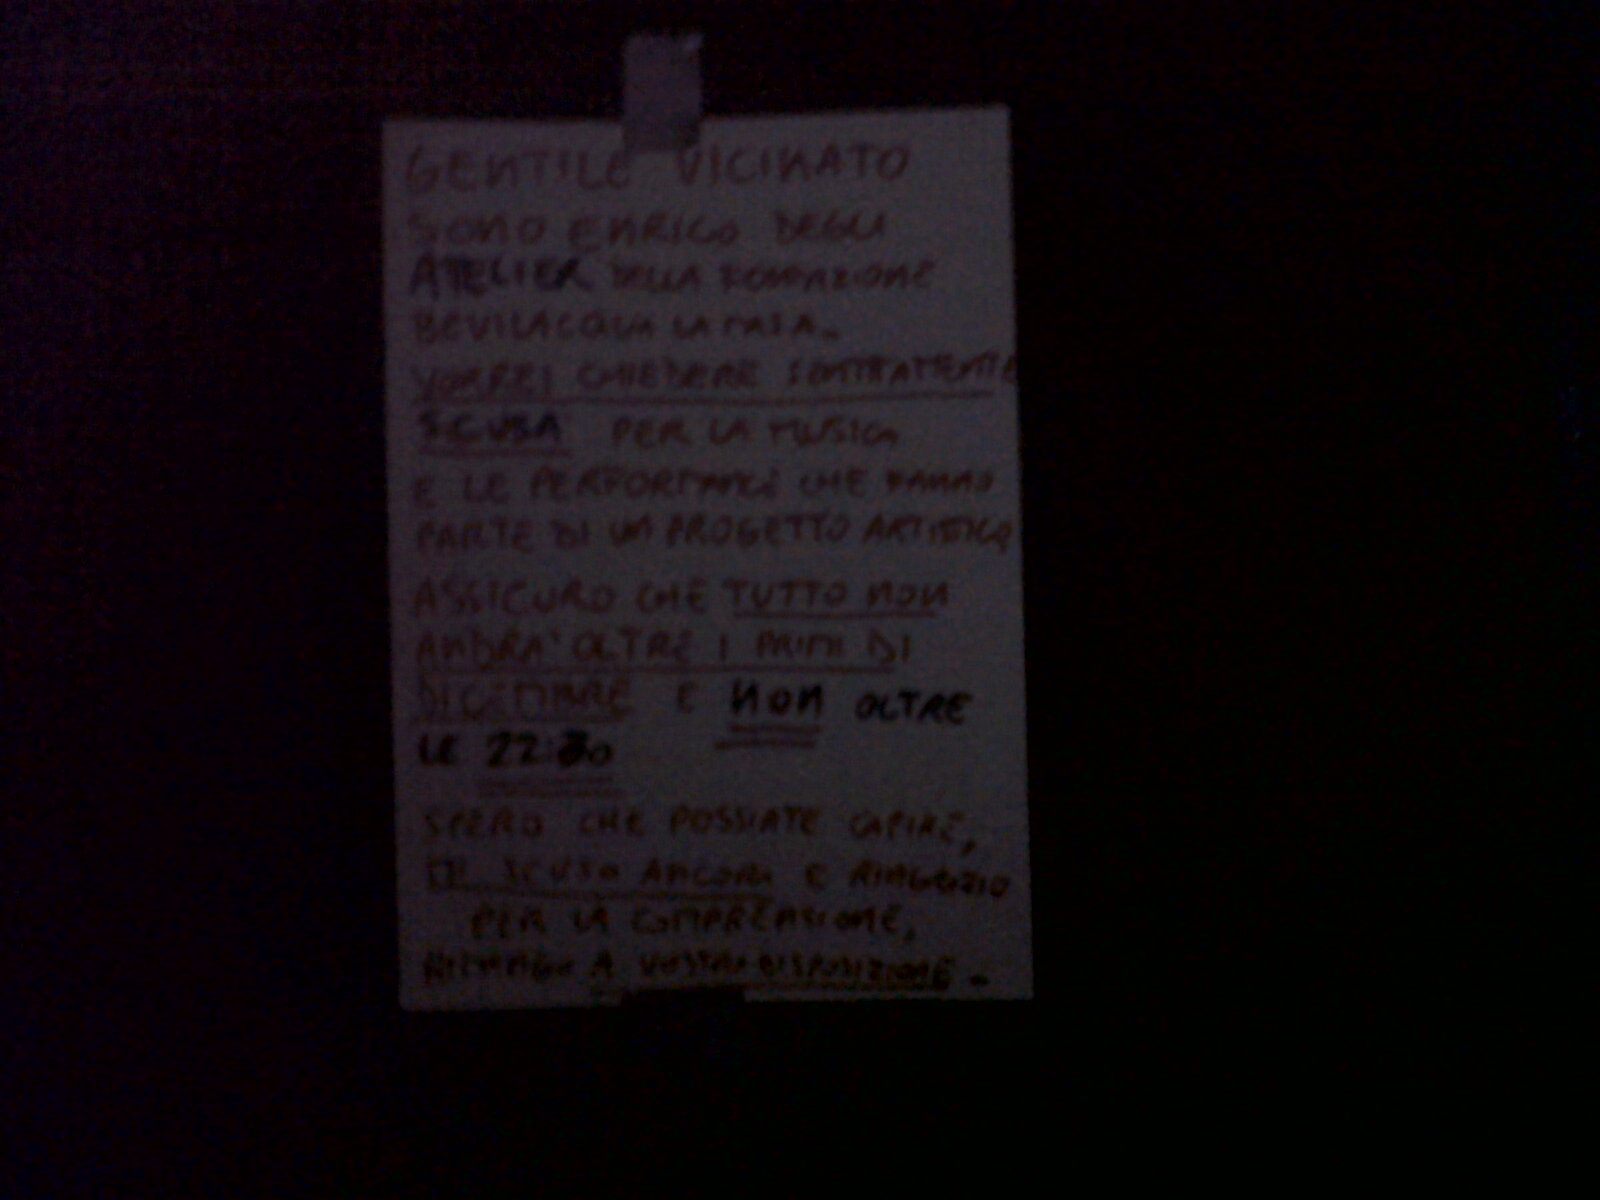 GENTILE VICINATO
SONO ENRICO DEGLI
ATELIER DELLA FONDAZIONE
BEVILACQUA LA MASA.
VORREI CHIEDERE
SCUSA PER LA MUSICA
E LE PERFORMANCE CHE FANNO
PARTE DI UN PROGETTO ARTISTICO
ASSICURO CHE TUTTO NON
ANDRA' OLTRE I PRIMI DI
DICEMBRE E NON OLTRE
LE 22:30
SPERO CHE POSSIATE CAPIRE,
MI SCUSO ANCORA E RINGRAZIO
PER LA COMPRENSIONE,
RIMANGO A VOSTRA DISPOSIZIONE -